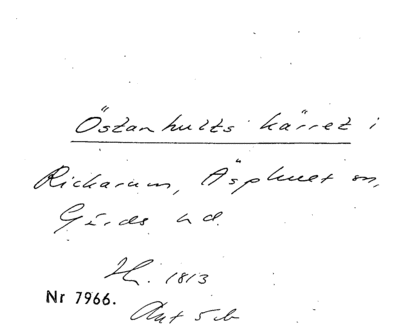 Östanhults kärret i
Rickarum, Äsphult sn,
Gärds hd.
1813
Nr 7966.
Akt 5 b